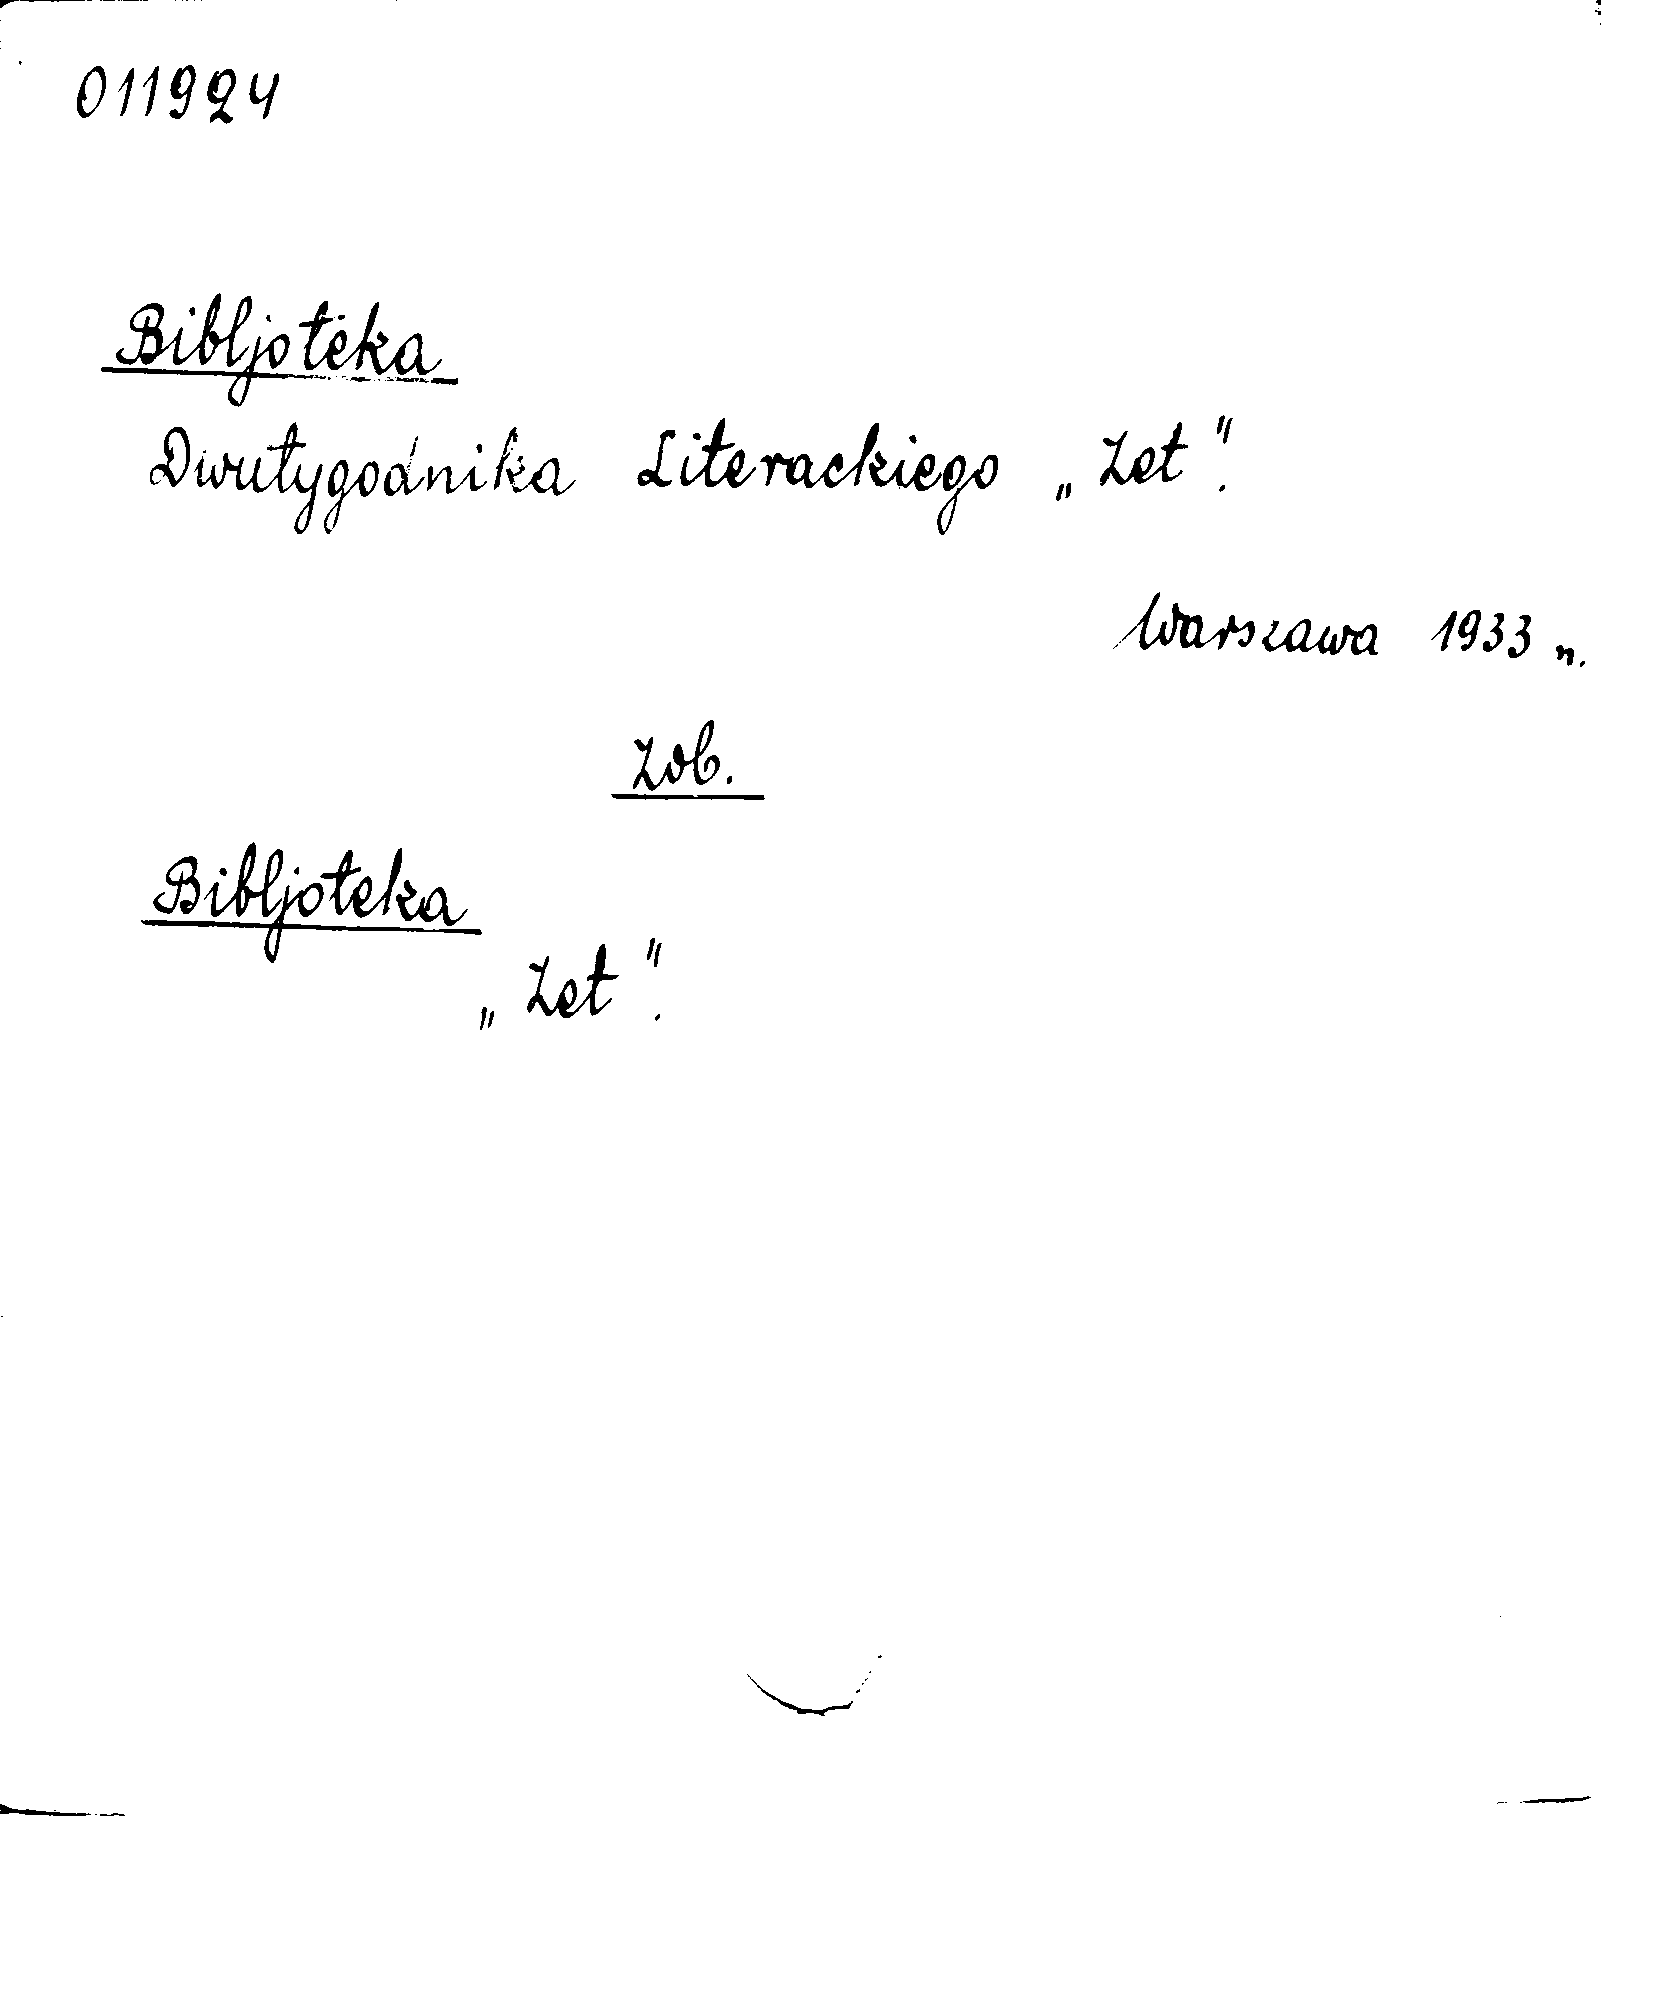 011924
Bibljoteka
Dwutygodnika Literackiego „Zet".
Warszawa 1933 n.
Zob.
Bibljoteka
„Zet".